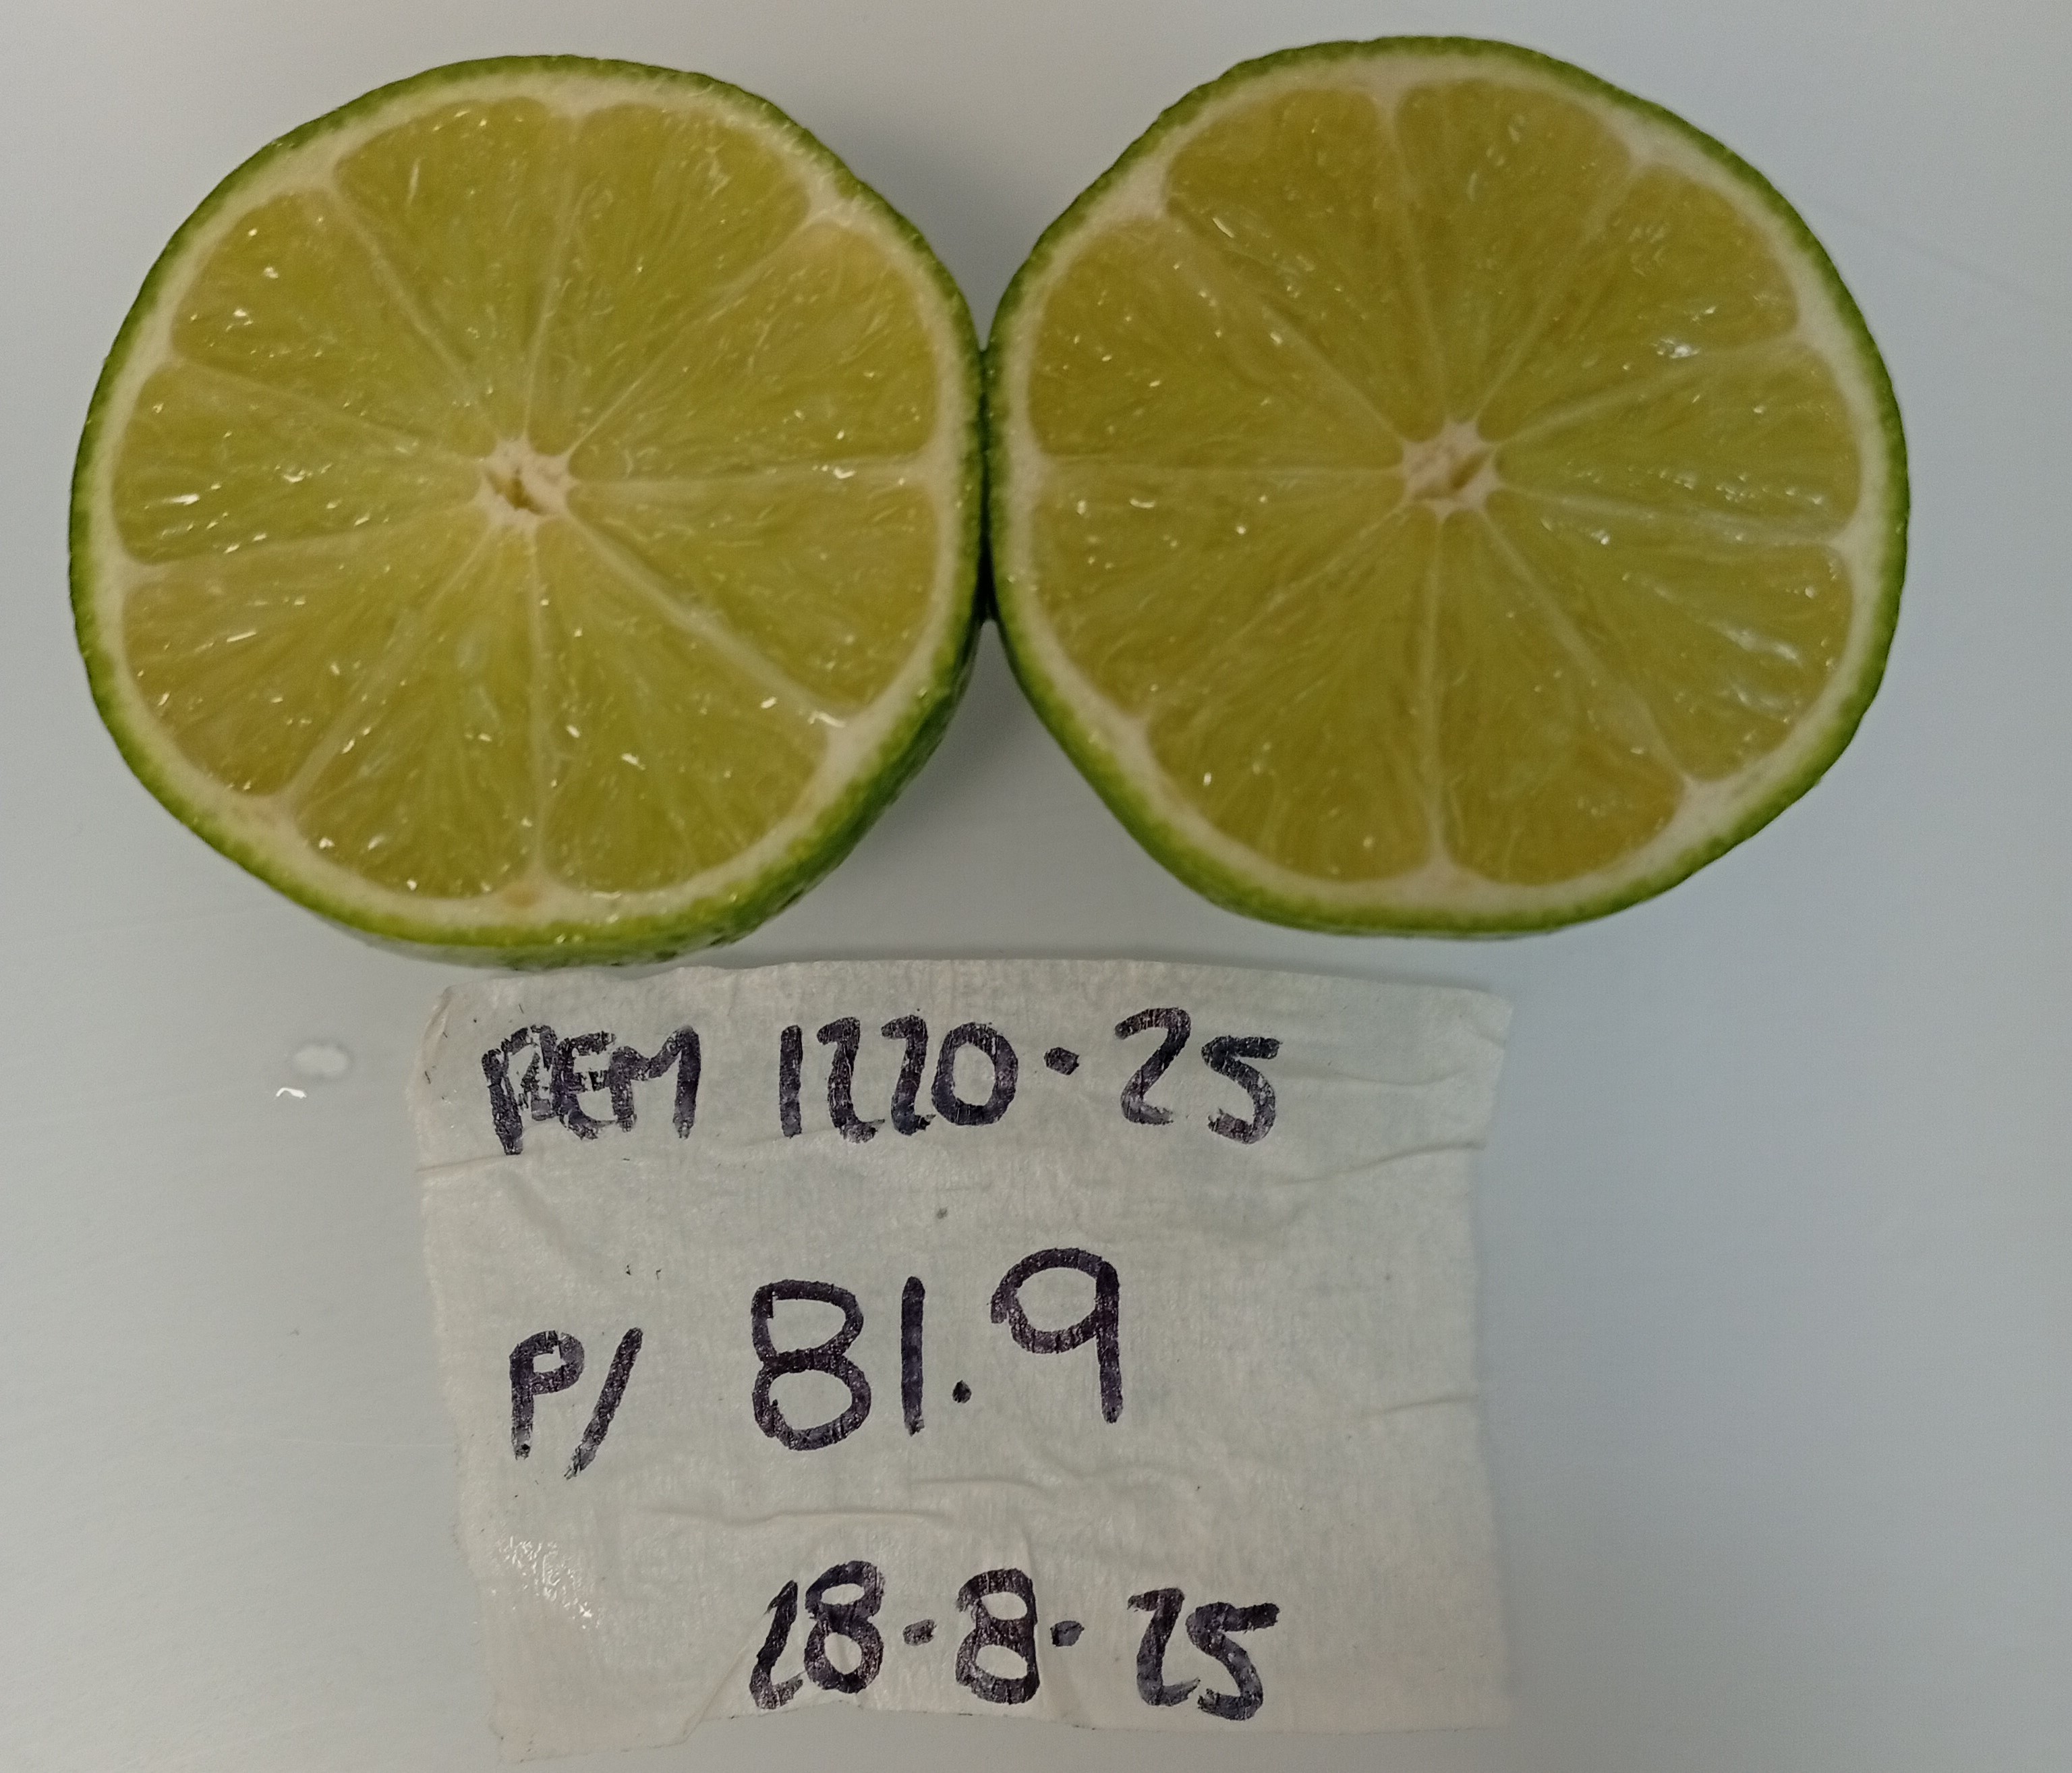 REM 1220.25
P/ 81.9
28-8-25